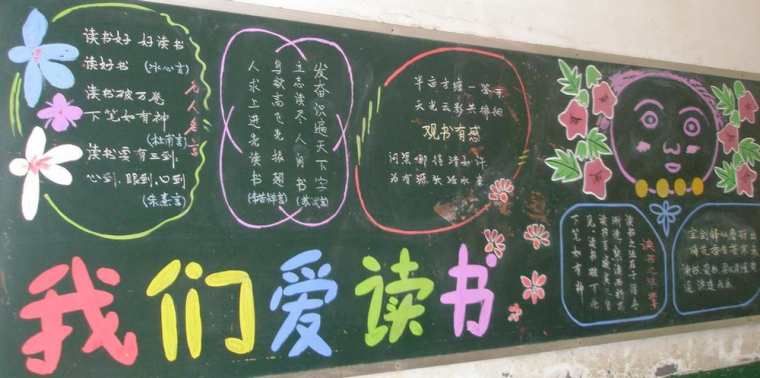 读书好 好读书
读好书 (冰心言)
读书破万卷
下笔如有神
(杜甫言)
读书要有三到,
心到,眼到,口到
(朱熹言)
名人名言
发奋识遍天下字
立志读尽人间书
(苏轼言)
鸟欲高飞先振翅
人求上进先读书
(李苦禅言)
半亩方塘一鉴开
天光云影共徘徊
观书有感
问渠哪得清如许
为有源头活水来
我们爱读书
读书之法在于循序
渐进,熟读而精思
下笔如有神
宝剑锋从磨砺出
梅花香自苦寒来